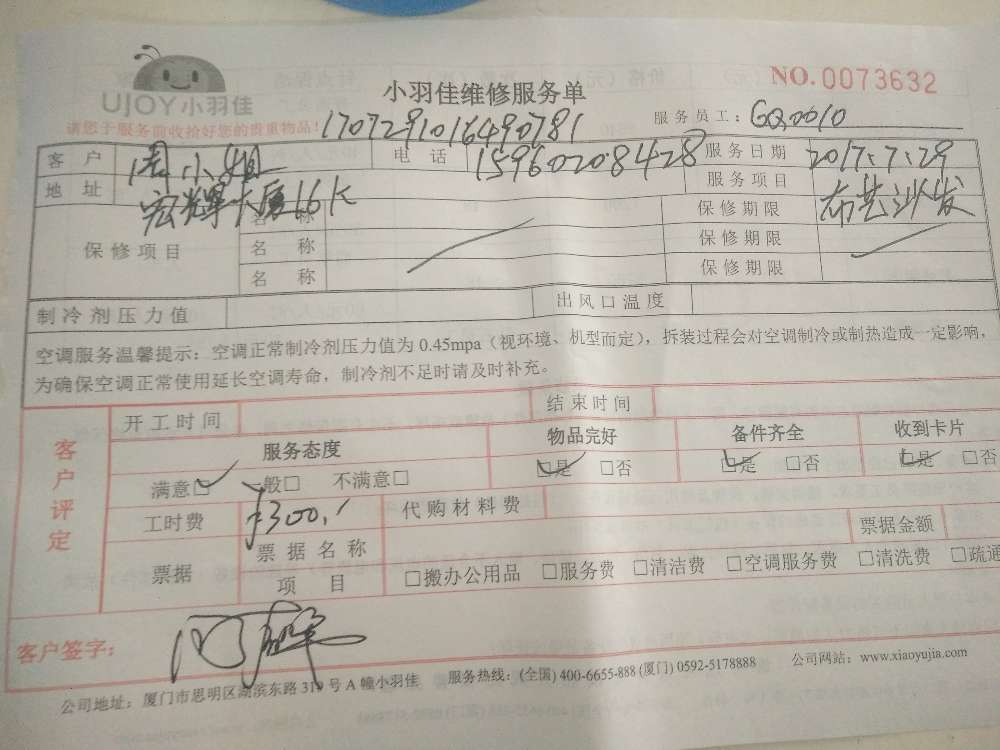 UJOY小羽佳
小羽佳维修服务单
NO.0073632
请您于服务前收拾好您的贵重物品!
1707291016490781
服务员工:GQ0010
客 户 周小姐 电 话 15960208428 服务日期 2017.7.29
地 址 宏辉大厦16K 服务项目 布艺沙发
保修项目 名 称 保修期限
名 称 保修期限
名 称 保修期限
制冷剂压力值 出风口温度
空调服务温馨提示:空调正常制冷剂压力值为 0.45mpa(视环境、机型而定),拆装过程会对空调制冷或制热造成一定影响,
为确保空调正常使用延长空调寿命,制冷剂不足时请及时补充。
客户评定
开工时间 结束时间
服务态度 物品完好 备件齐全 收到卡片
满意□ 一般□ 不满意□ □是 □否 □是 □否 □是 □否
工时费 ¥300 代购材料费
票据 票据名称 票据金额
项 目 □搬办公用品 □服务费 □清洁费 □空调服务费 □清洗费 □疏通
客户签字:
公司地址:厦门市思明区湖滨东路 319 号 A 幢小羽佳 服务热线:(全国) 400-6655-888 (厦门) 0592-5178888 公司网站:www.xiaoyujia.com